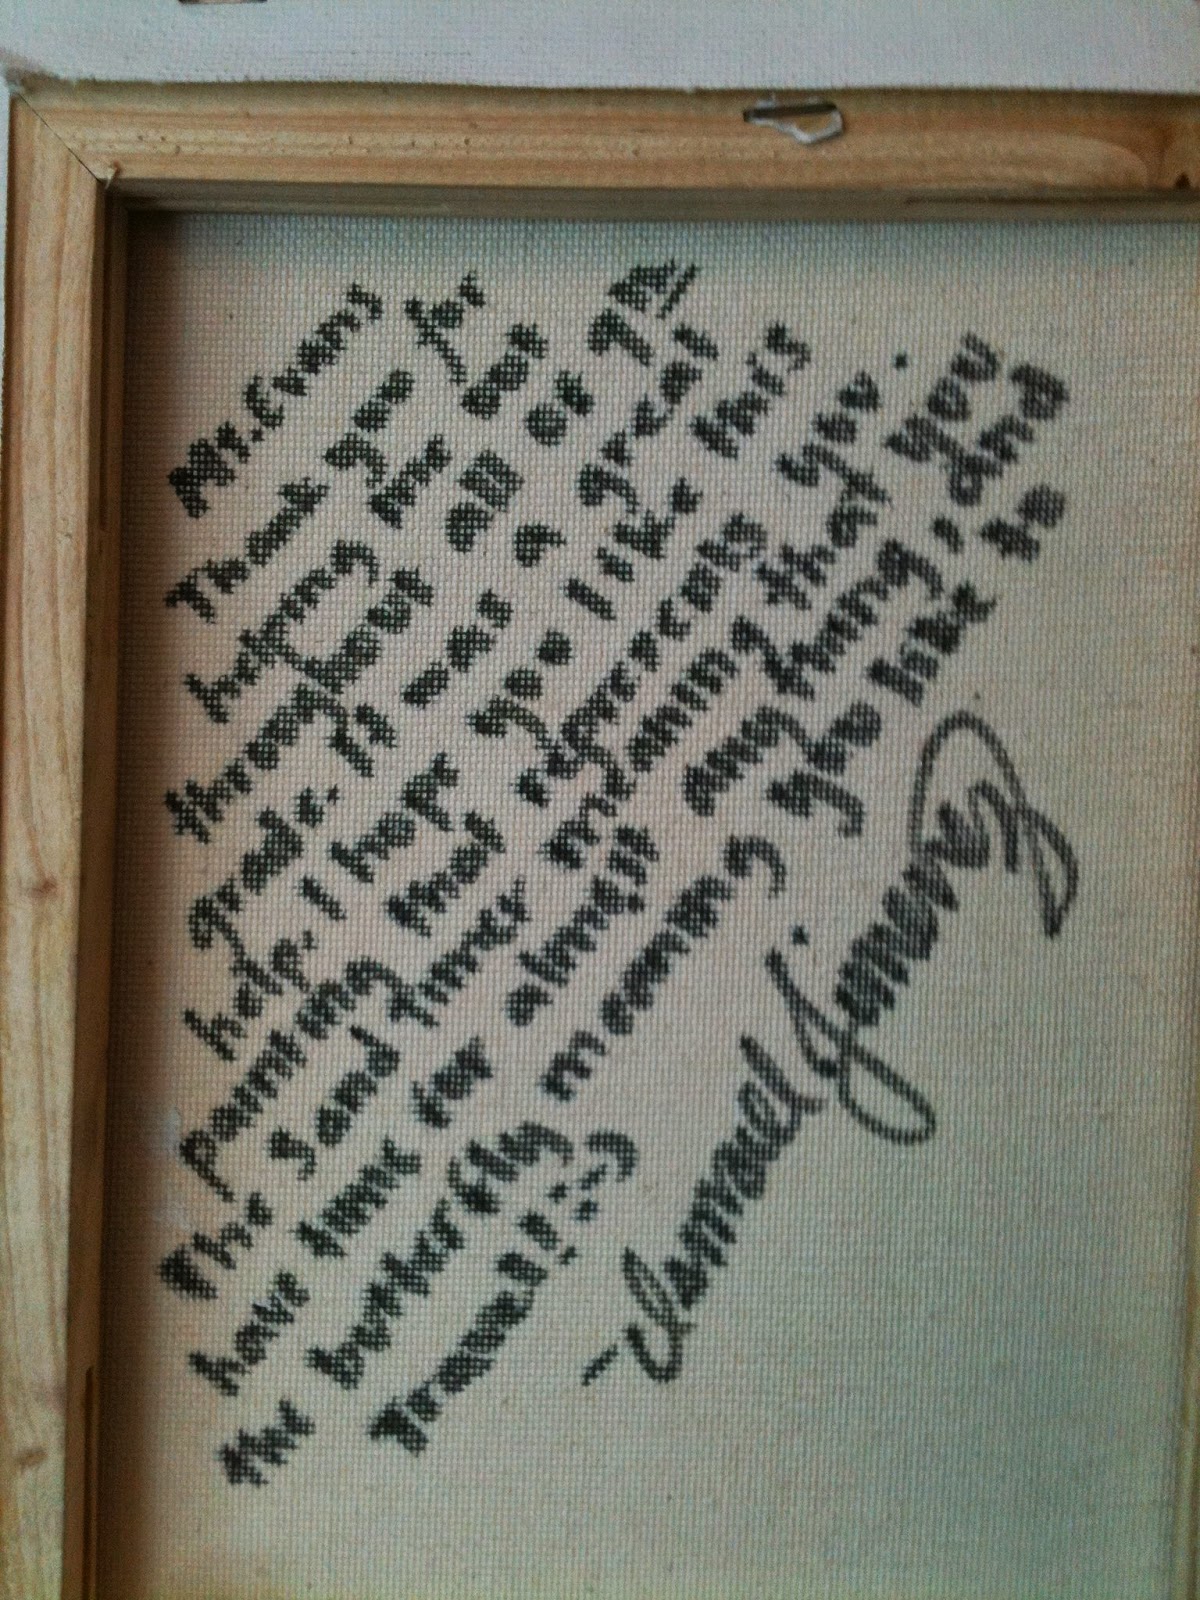 Mr. Evans
Thank you for
helping me out
throughout all of 9th
grade. It was a great
help. I hope you like this
painting that represents you.
The sand timer meaning that you
have time for almost any thing, and
the butterfly meaning you like to
Travel! :)
-Ismael Jimenez